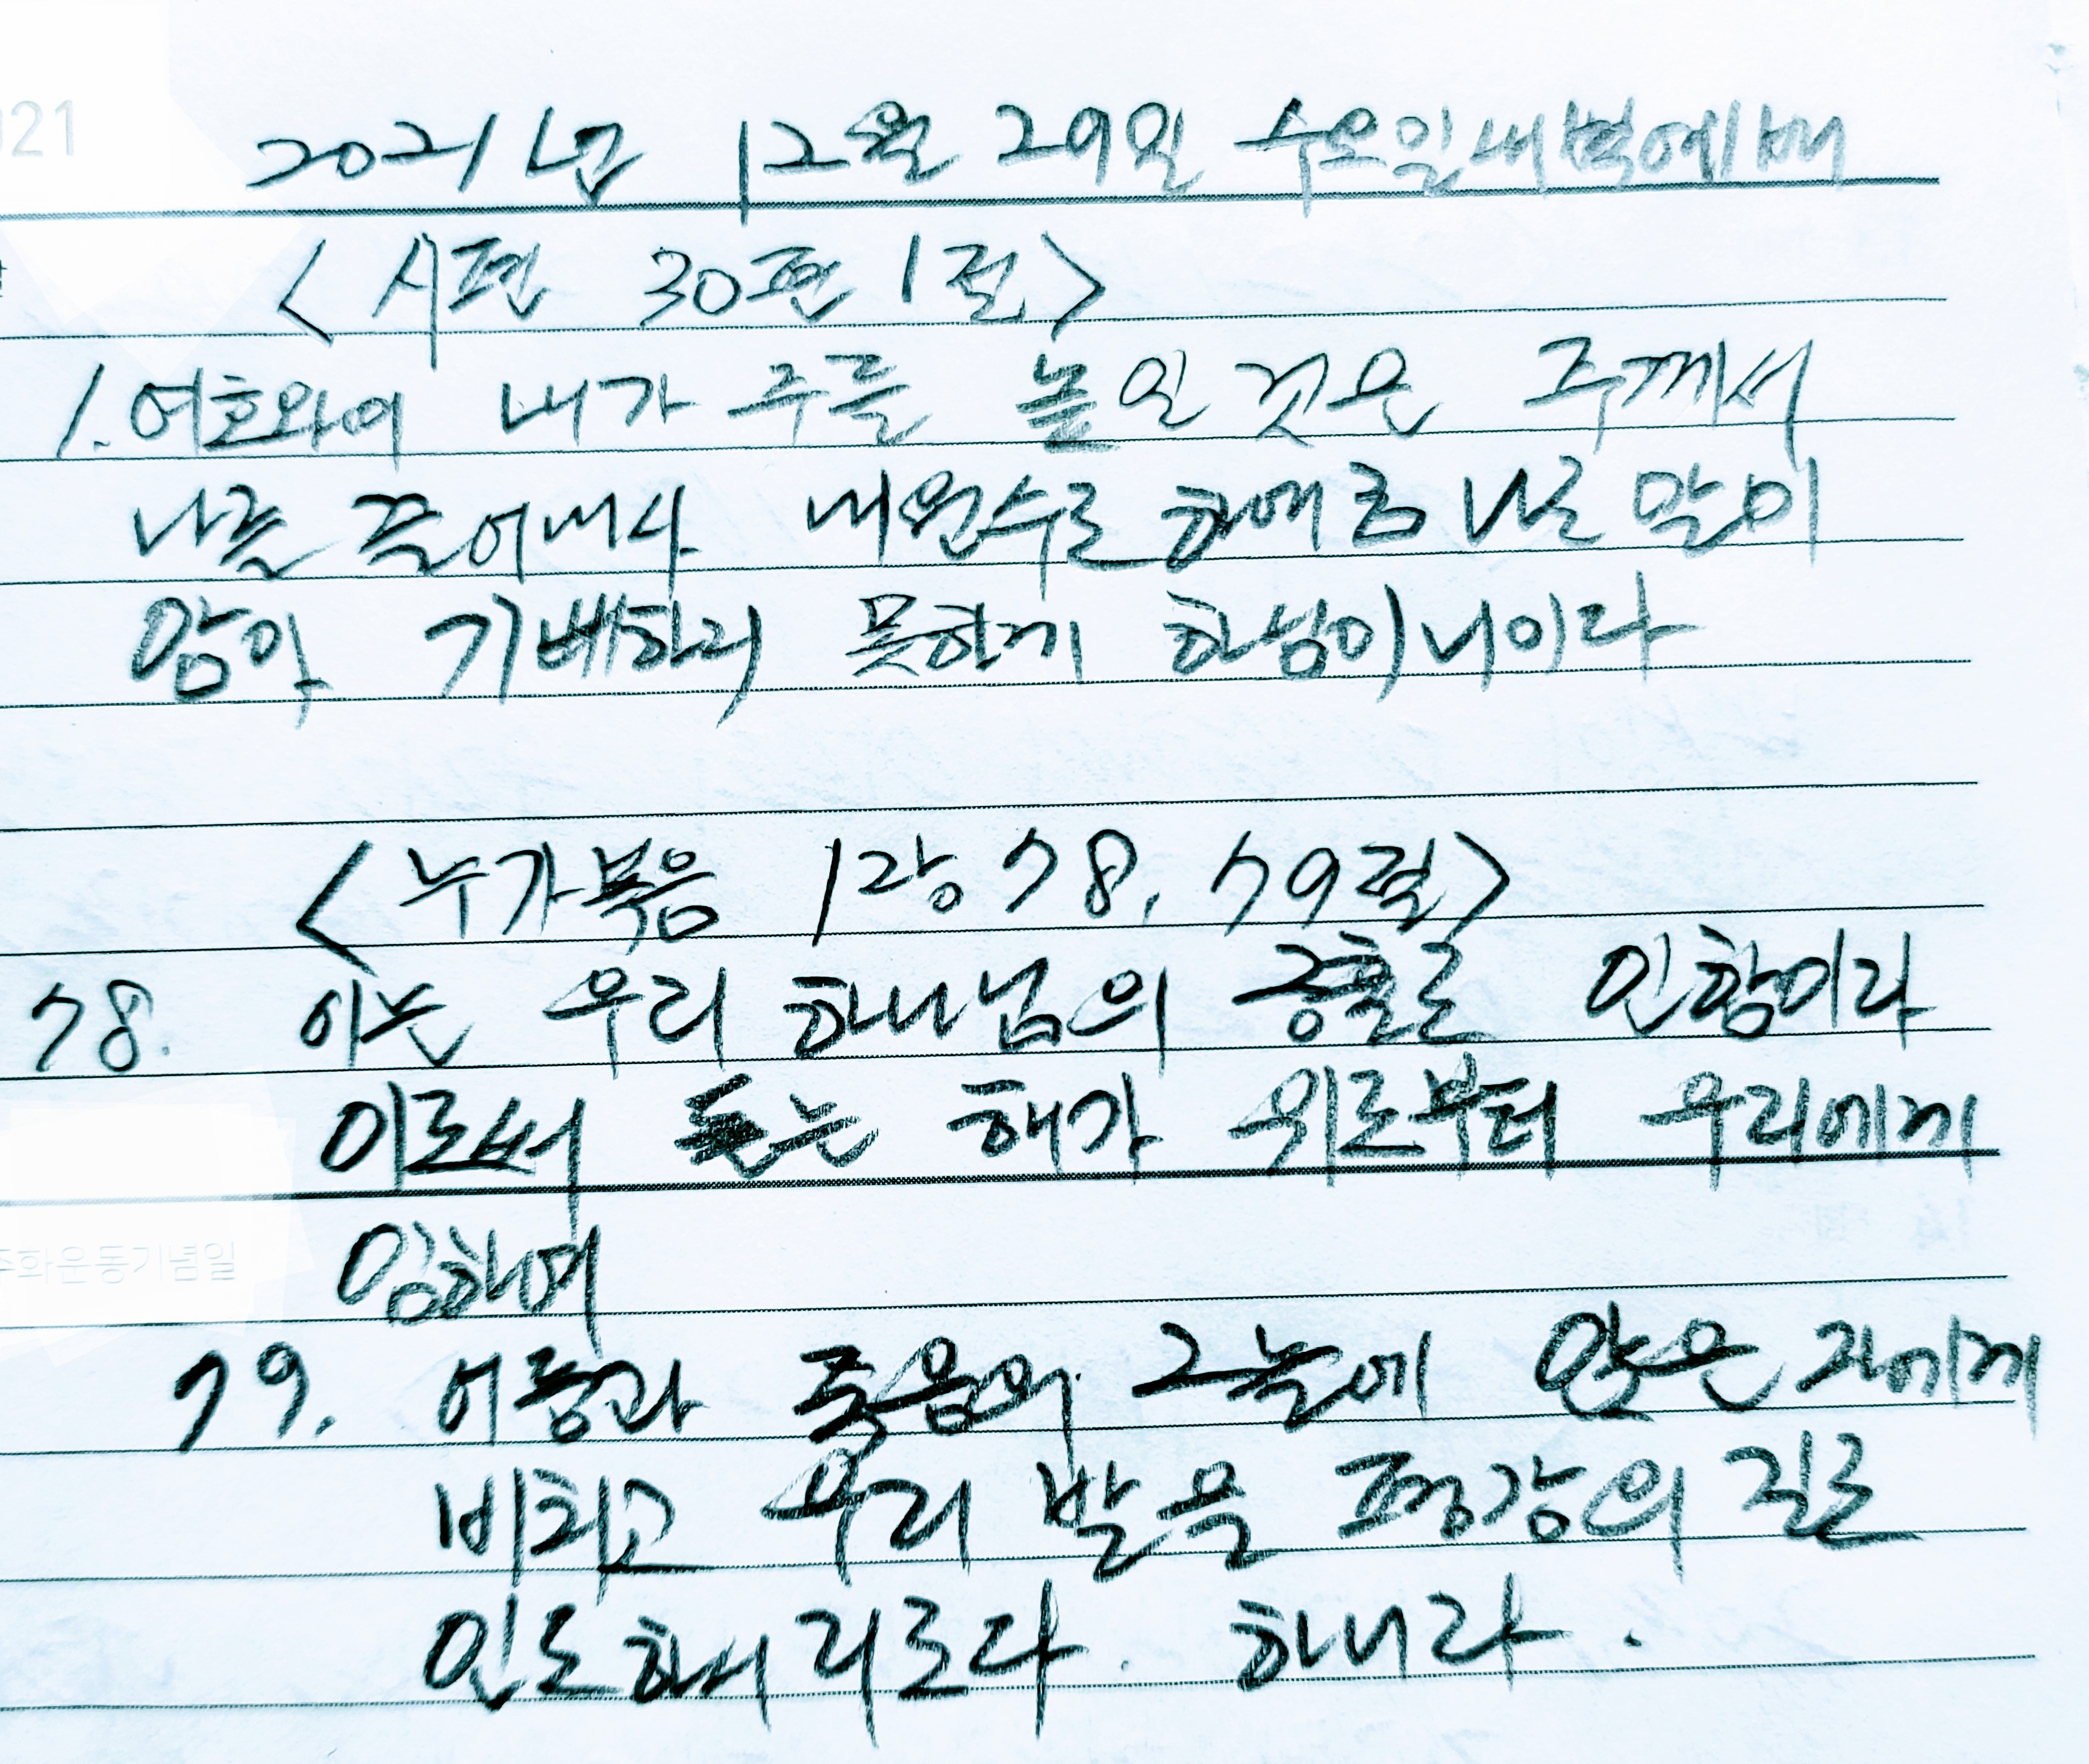 021
2021년 12월 29일 수요일새벽예배
<시편 30편 1절>
1. 여호와여 내가 주를 높일 것은 주께서
나를 끌어내사 내원수로 하여금 나로 말미
암아 기뻐하지 못하게 하심이니이다
<누가복음 1장 78, 79절>
78. 이는 우리 하나님의 긍휼로 인함이라
이로써 돋는 해가 위로부터 우리에게
임하며
주화운동기념일
79. 어둠과 죽음의 그늘에 앉은 자에게
비치고 우리 발을 평강의 길로
인도하시리로다. 하니라.